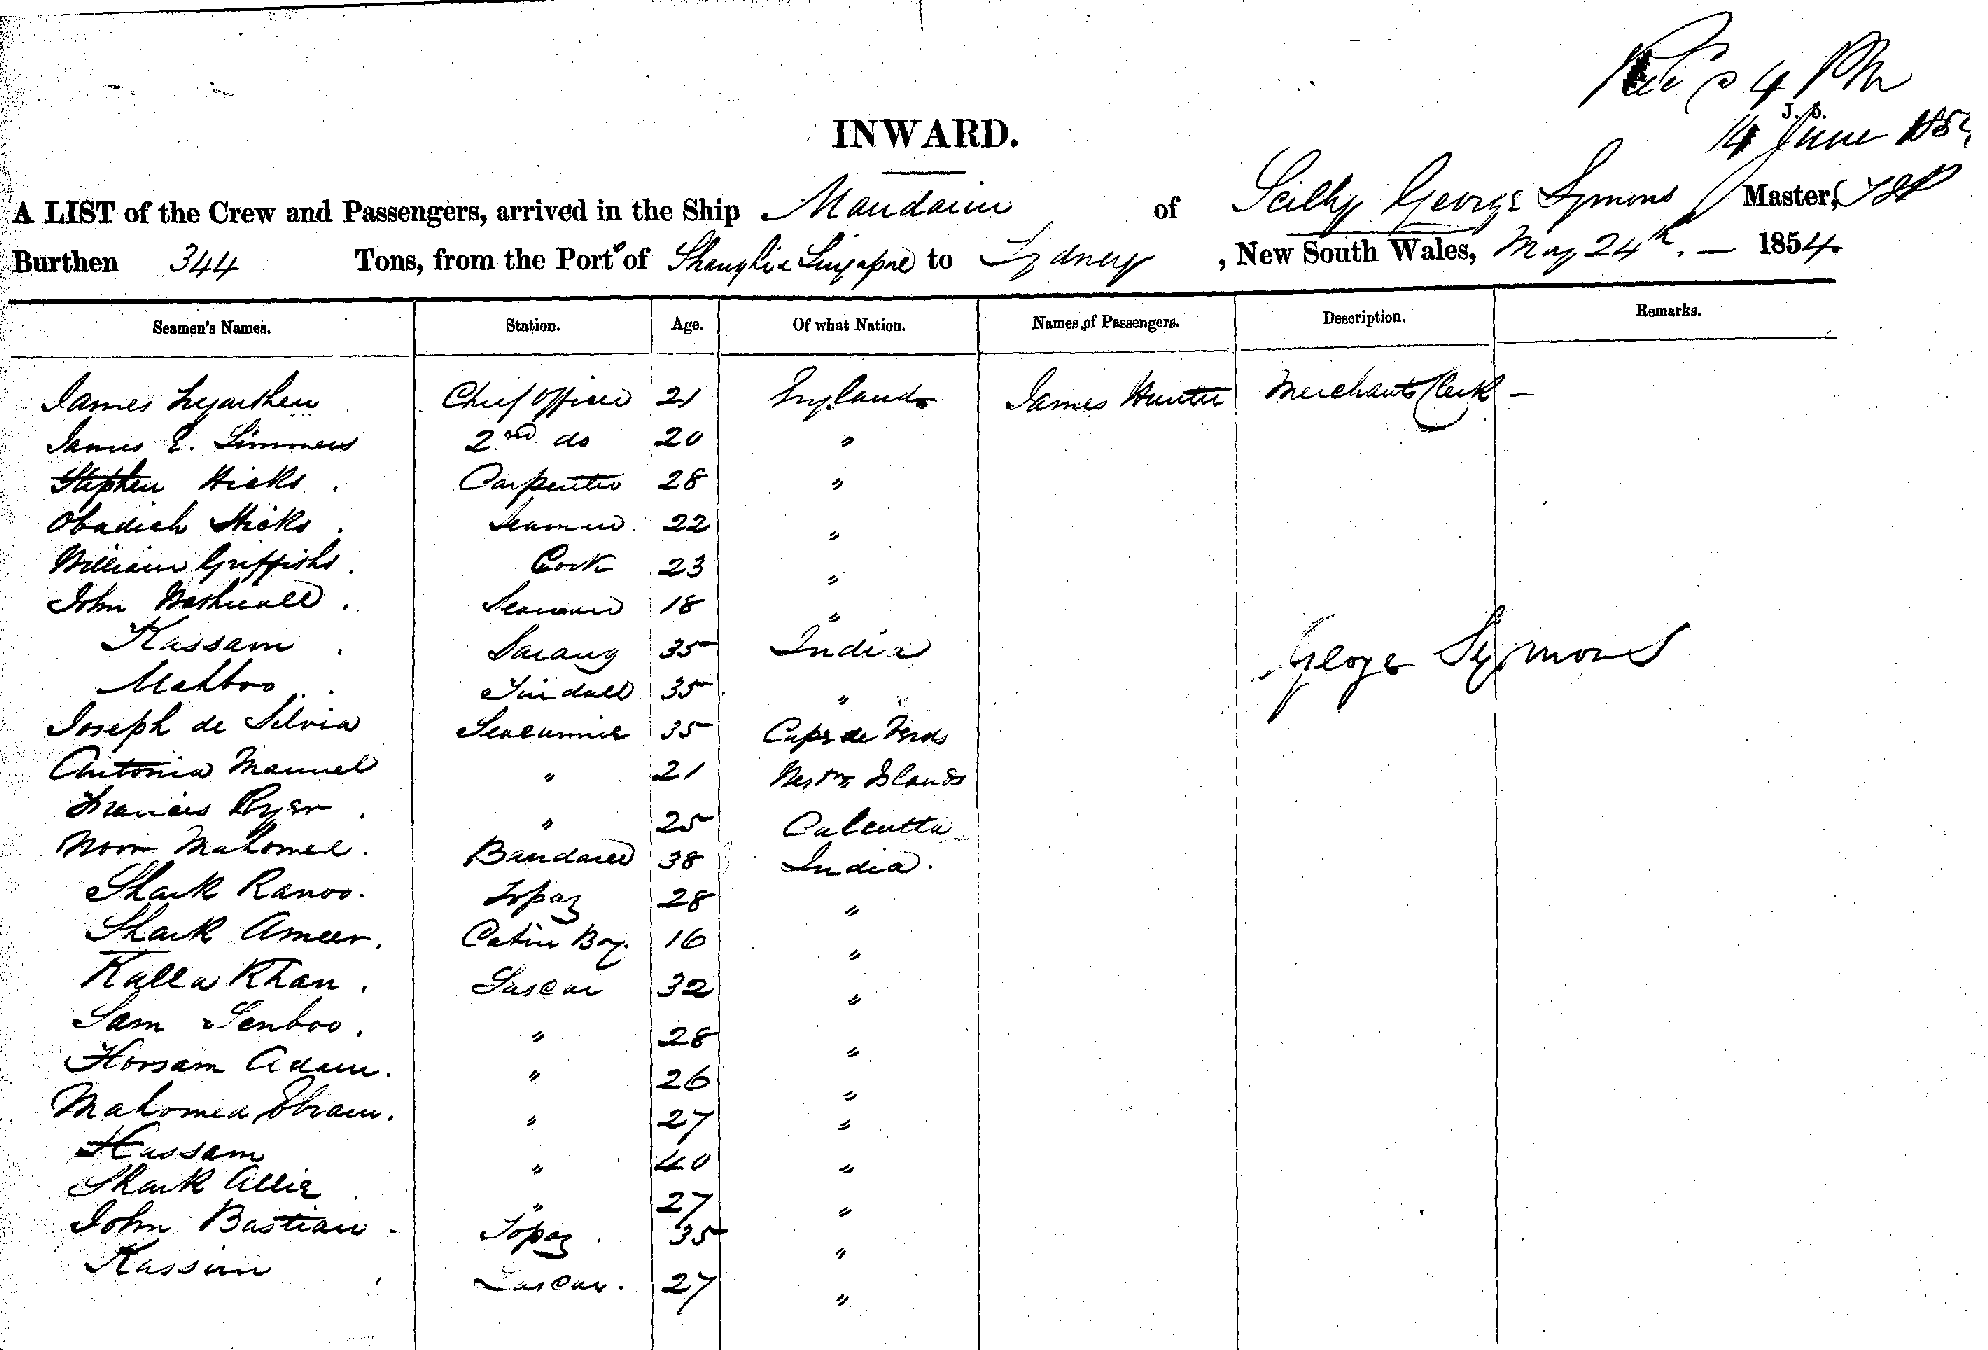 4 PM
14 June 185
J.S.
INWARD.
A LIST of the Crew and Passengers, arrived in the Ship Mandarin of Scilly George Symons Master,
Burthen 344 Tons, from the Port of Shanghai Singapore to Sydney, New South Wales, May 24th. — 1854
Seamen's Names. Station. Age. Of what Nation. Names of Passengers. Description. Remarks.
James Chief Officer 21 England James Hunter Merchants Clerk —
James E. Simmens 2nd do 20 "
Stephen Hicks . Carpenter 28 "
Obadiah Hicks . Seaman . 22 "
William Griffiths . Cook 23 "
John . Seaman 18 "
Kassam . Sarang 35 India
George Symons
Mahboo . Tindall 35 "
Joseph de Silvia Seacunnie 35 Cape de Verds
Antonia Manuel " 21 Westrn Islands
Francis Ryer . " 25 Calcutta
Noor Mahomed . 38 India .
Shaik Ranoo . Topaz 28 "
Shaik Ameer . Cabin Boy . 16 "
Kalla Khan . Lascar 32 "
Sam Senboo . " 28 "
Horsam Adam . " 26 "
Mahomed Ebram . " 27 "
Hassam " 40 "
Shaik Allie " 27 "
John Bastian . Topaz . 35 "
Kassim Lascar . 27 "